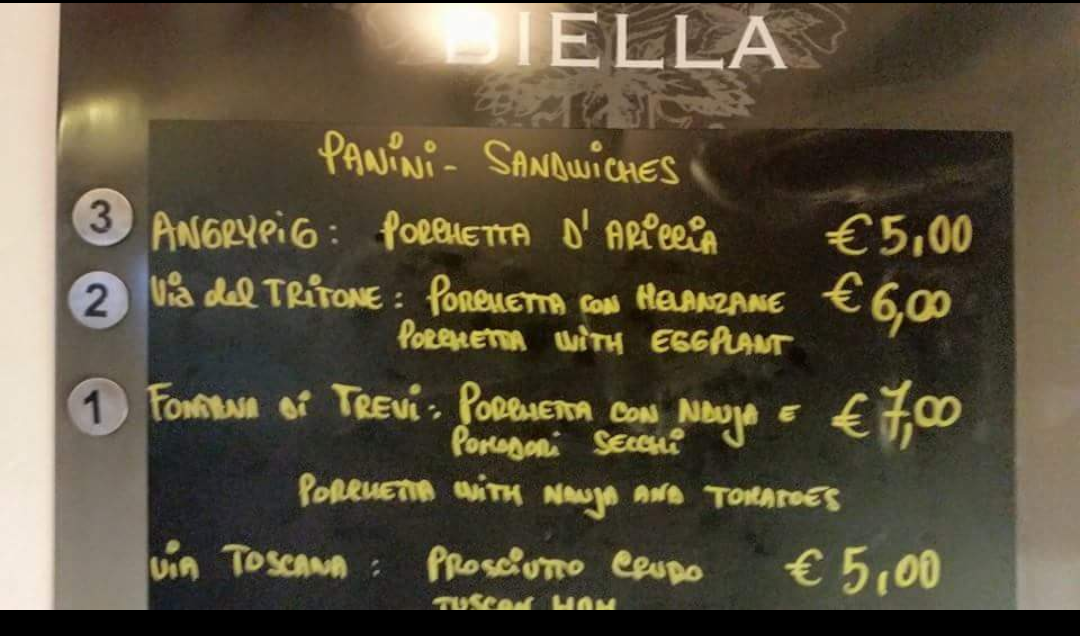 BIELLA
PANINI - SANDWICHES
3 ANGRYPIG: PORCHETTA D'ARICCIA €5,00
2 Via del TRITONE: PORCHETTA CON MELANZANE €6,00
PORCHETTA WITH EGGPLANT
1 FONTANA DI TREVI: PORCHETTA CON NDUJA E €7,00
POMODORI SECCHI
PORCHETTA WITH NDUJA AND TOMATOES
VIA TOSCANA: PROSCIUTTO CRUDO €5,00
TUSCAN HAM